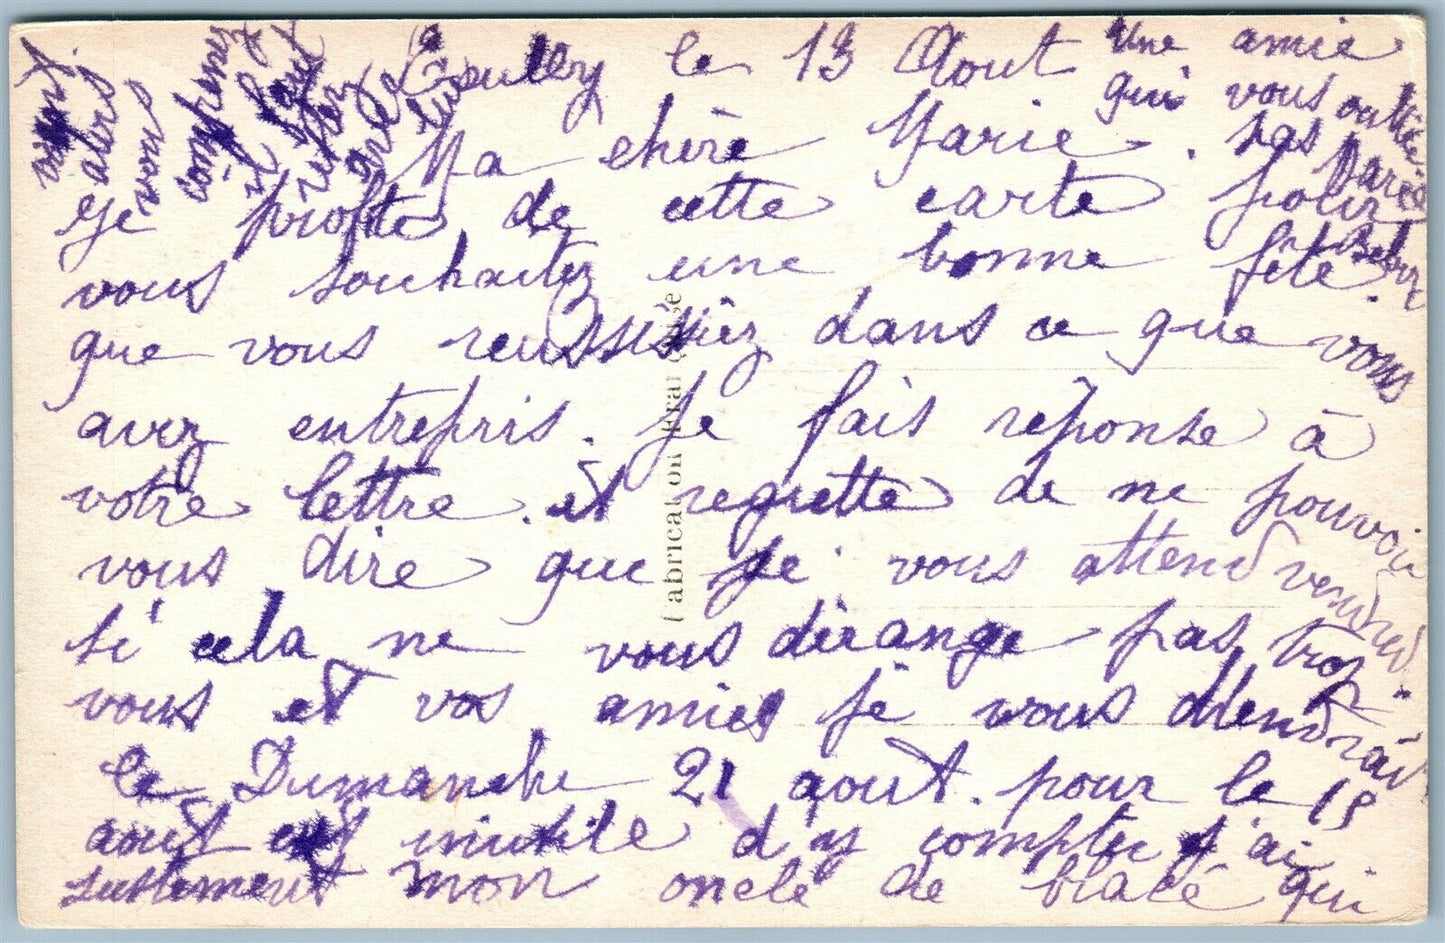 le 13 Aout
Ma chère Marie.
Je profite de cette carte pour
vous souhaitez une bonne fête.
que vous reussissiez dans ce que vous
avez entrepris. Je fais réponse à
votre lettre. et regrette de ne pouvoir
vous dire que je vous attend vendredi.
si cela ne vous dérange pas trop
vous et vos amies je vous attendrai
le Dumanche 21 aout. pour le 15
aout est inutile d'y compter j'ai
justement mon oncle de qui
vient
alors
vous
comprenez
il faut
restez
avec
lui
Une amie
qui vous oublie
pas
Fabrication Française